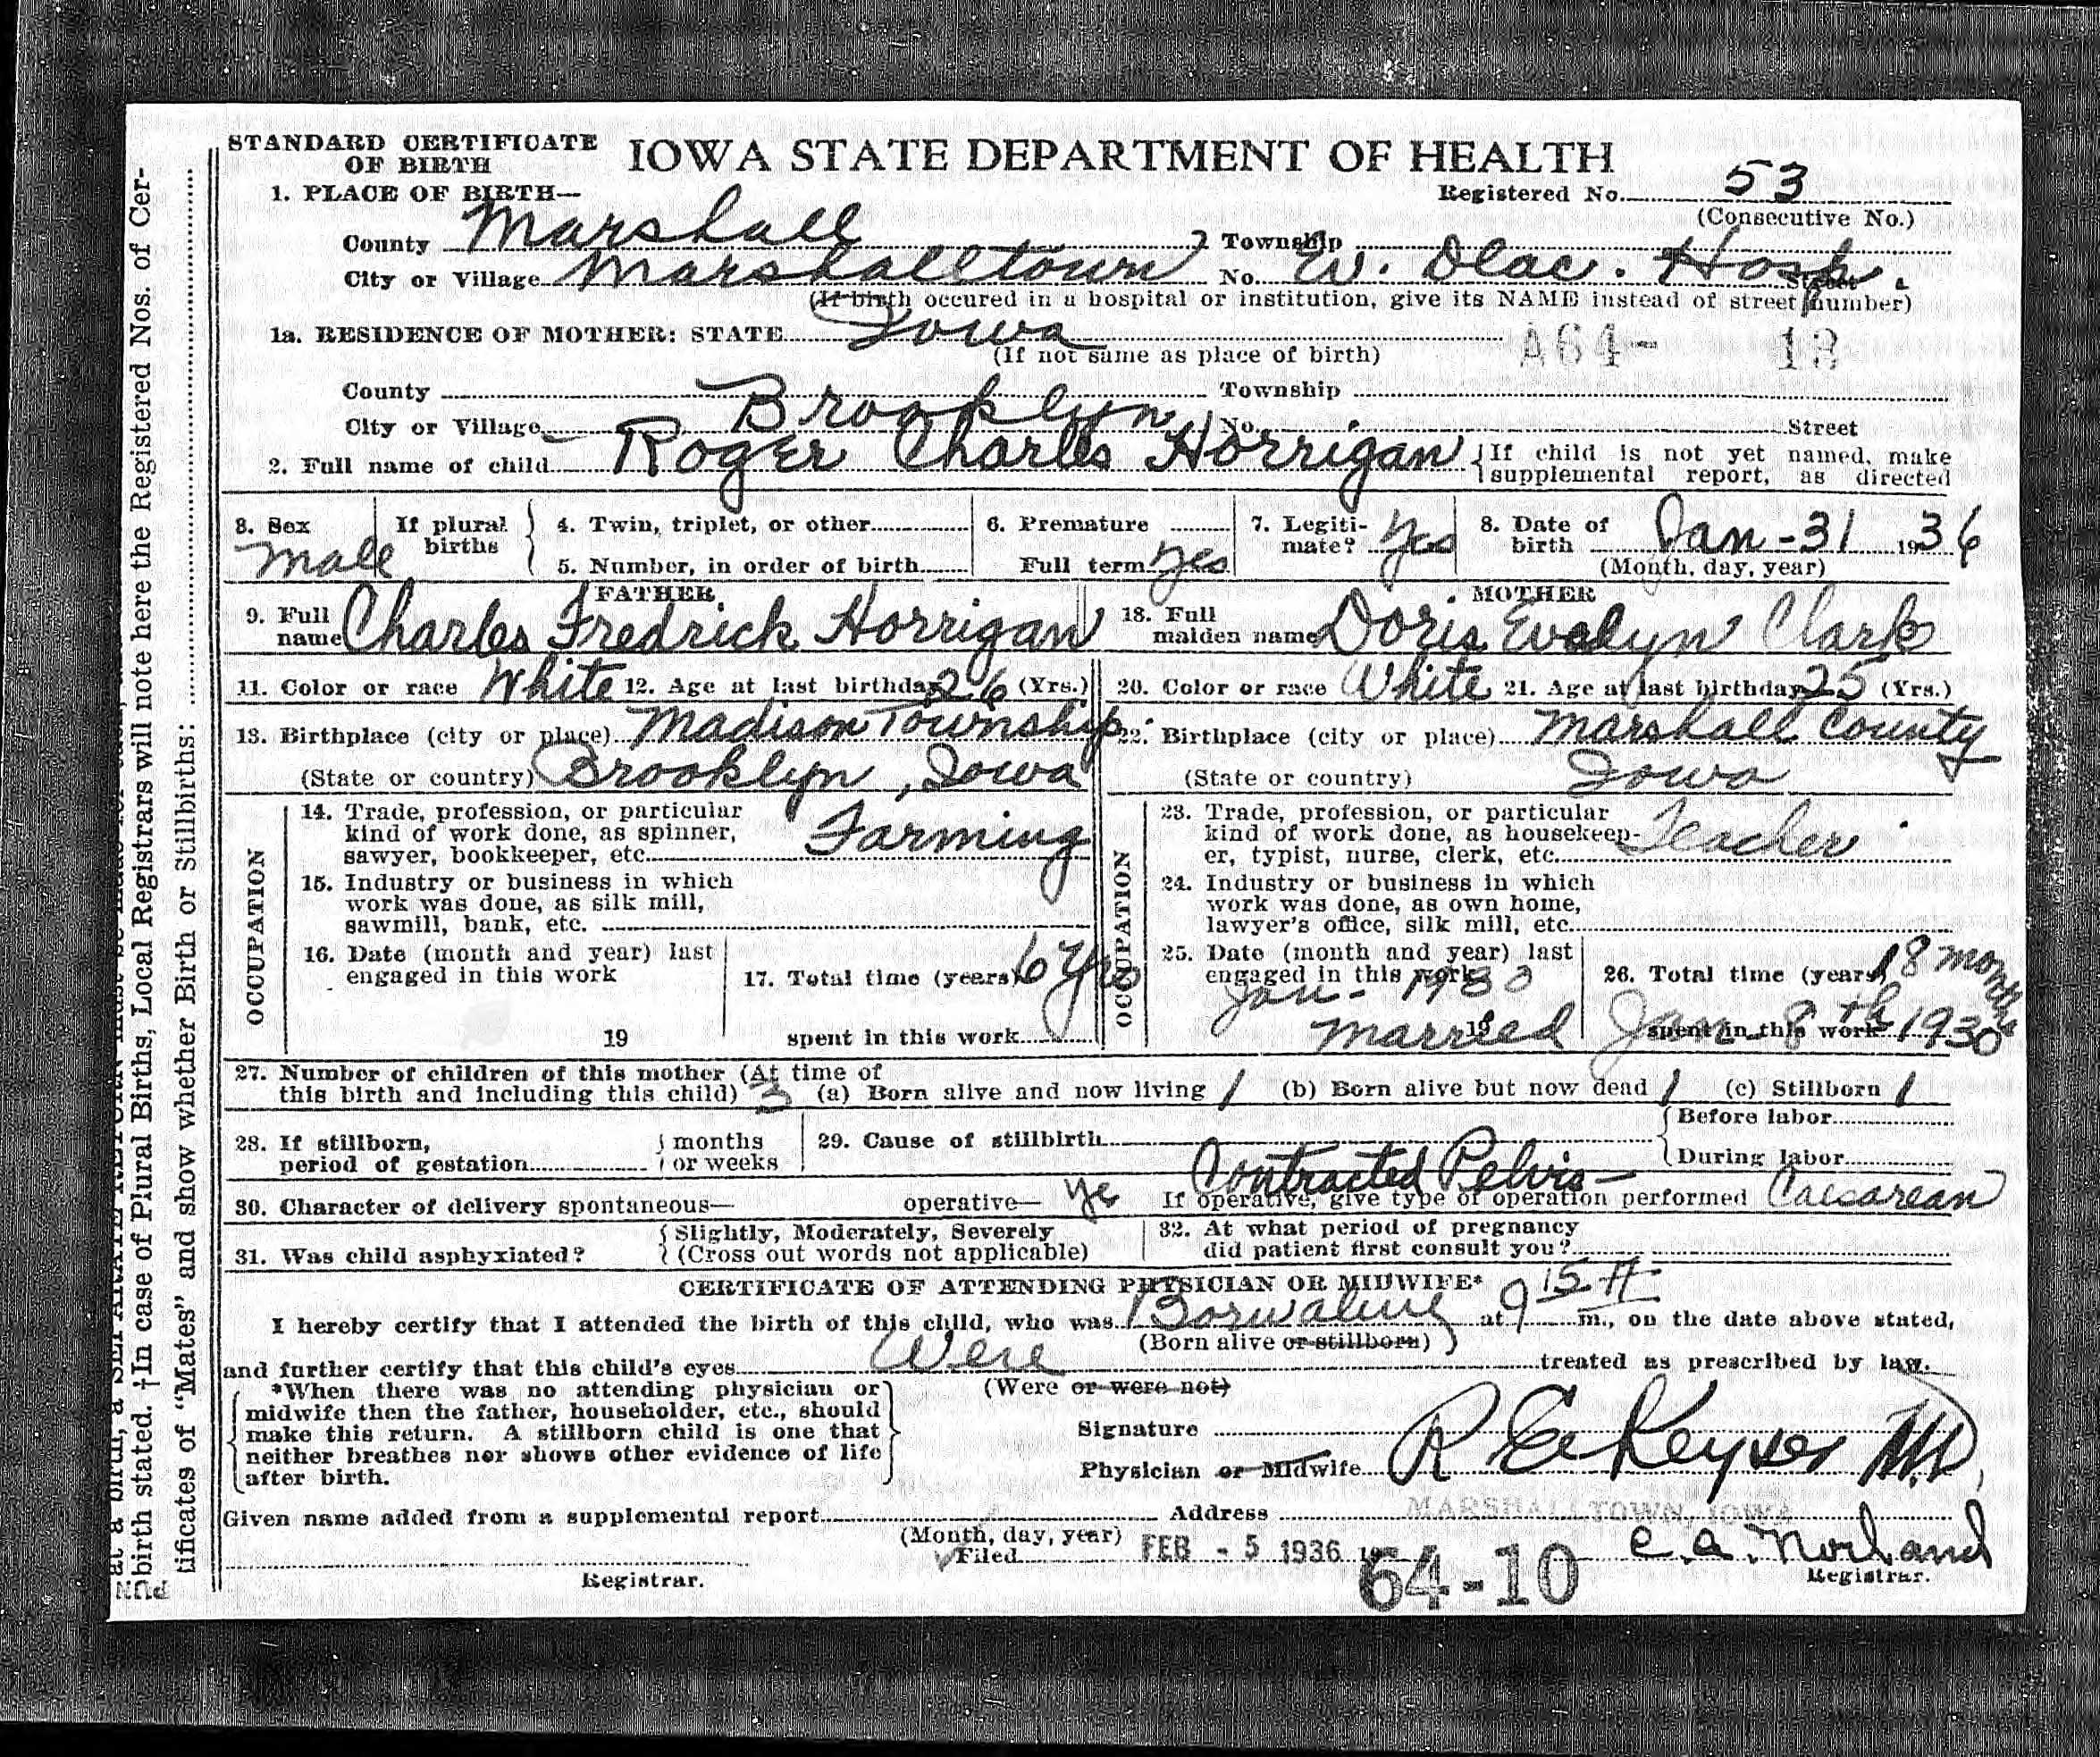 STANDARD CERTIFICATE OF BIRTH
IOWA STATE DEPARTMENT OF HEALTH
1. PLACE OF BIRTH—
Registered No. 53
(Consecutive No.)
County Marshall Township
City or Village Marshalltown No. Ev. Deac. Hosp. Street
(If birth occured in a hospital or institution, give its NAME instead of street number)
1a. RESIDENCE OF MOTHER: STATE Iowa
(If not same as place of birth)
A64- 13
County Township
City or Village Brooklyn No. Street
2. Full name of child Roger Charles Horrigan {If child is not yet named, make supplemental report, as directed
3. Sex Male
If plural births { 4. Twin, triplet, or other
5. Number, in order of birth
6. Premature
Full term yes
7. Legitimate? Yes
8. Date of birth Jan-31 1936
(Month, day, year)
FATHER
9. Full name Charles Fredrick Horrigan
MOTHER
18. Full maiden name Doris Evelyn Clark
11. Color or race White 12. Age at last birthday 26 (Yrs.)
20. Color or race White 21. Age at last birthday 25 (Yrs.)
13. Birthplace (city or place) Madison Township
(State or country) Brooklyn, Iowa
22. Birthplace (city or place) Marshall County
(State or country) Iowa
OCCUPATION
14. Trade, profession, or particular kind of work done, as spinner, sawyer, bookkeeper, etc. Farming
15. Industry or business in which work was done, as silk mill, sawmill, bank, etc.
16. Date (month and year) last engaged in this work
19
17. Total time (years) 6 yrs
spent in this work
OCCUPATION
23. Trade, profession, or particular kind of work done, as housekeeper, typist, nurse, clerk, etc. Teacher
24. Industry or business in which work was done, as own home, lawyer's office, silk mill, etc.
25. Date (month and year) last engaged in this work Jan- 1930
19
26. Total time (years) 18 months
spent in this work
Married Jan 8th 1930
27. Number of children of this mother (At time of
this birth and including this child) 3 (a) Born alive and now living 1 (b) Born alive but now dead 1 (c) Stillborn 1
28. If stillborn, period of gestation { months or weeks
29. Cause of stillbirth { Before labor
During labor
Contracted Pelvis—
30. Character of delivery spontaneous— operative— Ye If operative, give type of operation performed Caesarean
31. Was child asphyxiated? { Slightly, Moderately, Severely (Cross out words not applicable)
32. At what period of pregnancy did patient first consult you?
CERTIFICATE OF ATTENDING PHYSICIAN OR MIDWIFE*
I hereby certify that I attended the birth of this child, who was Born alive at 9 15 A m., on the date above stated,
(Born alive or stillborn)
and further certify that this child's eyes Were treated as prescribed by law.
(Were or were not)
*When there was no attending physician or
midwife then the father, householder, etc., should
make this return. A stillborn child is one that
neither breathes nor shows other evidence of life
after birth.
Signature
Physician or Midwife R E Keyser M.D.
Given name added from a supplemental report
(Month, day, year)
Registrar.
Address MARSHALLTOWN, IOWA
Filed FEB - 5 1936 19
C. A. Norland
Registrar.
64-10
birth stated. †In case of Plural Births, Local Registrars will note here the Registered Nos. of Cer-
tificates of "Mates" and show whether Birth or Stillbirths: